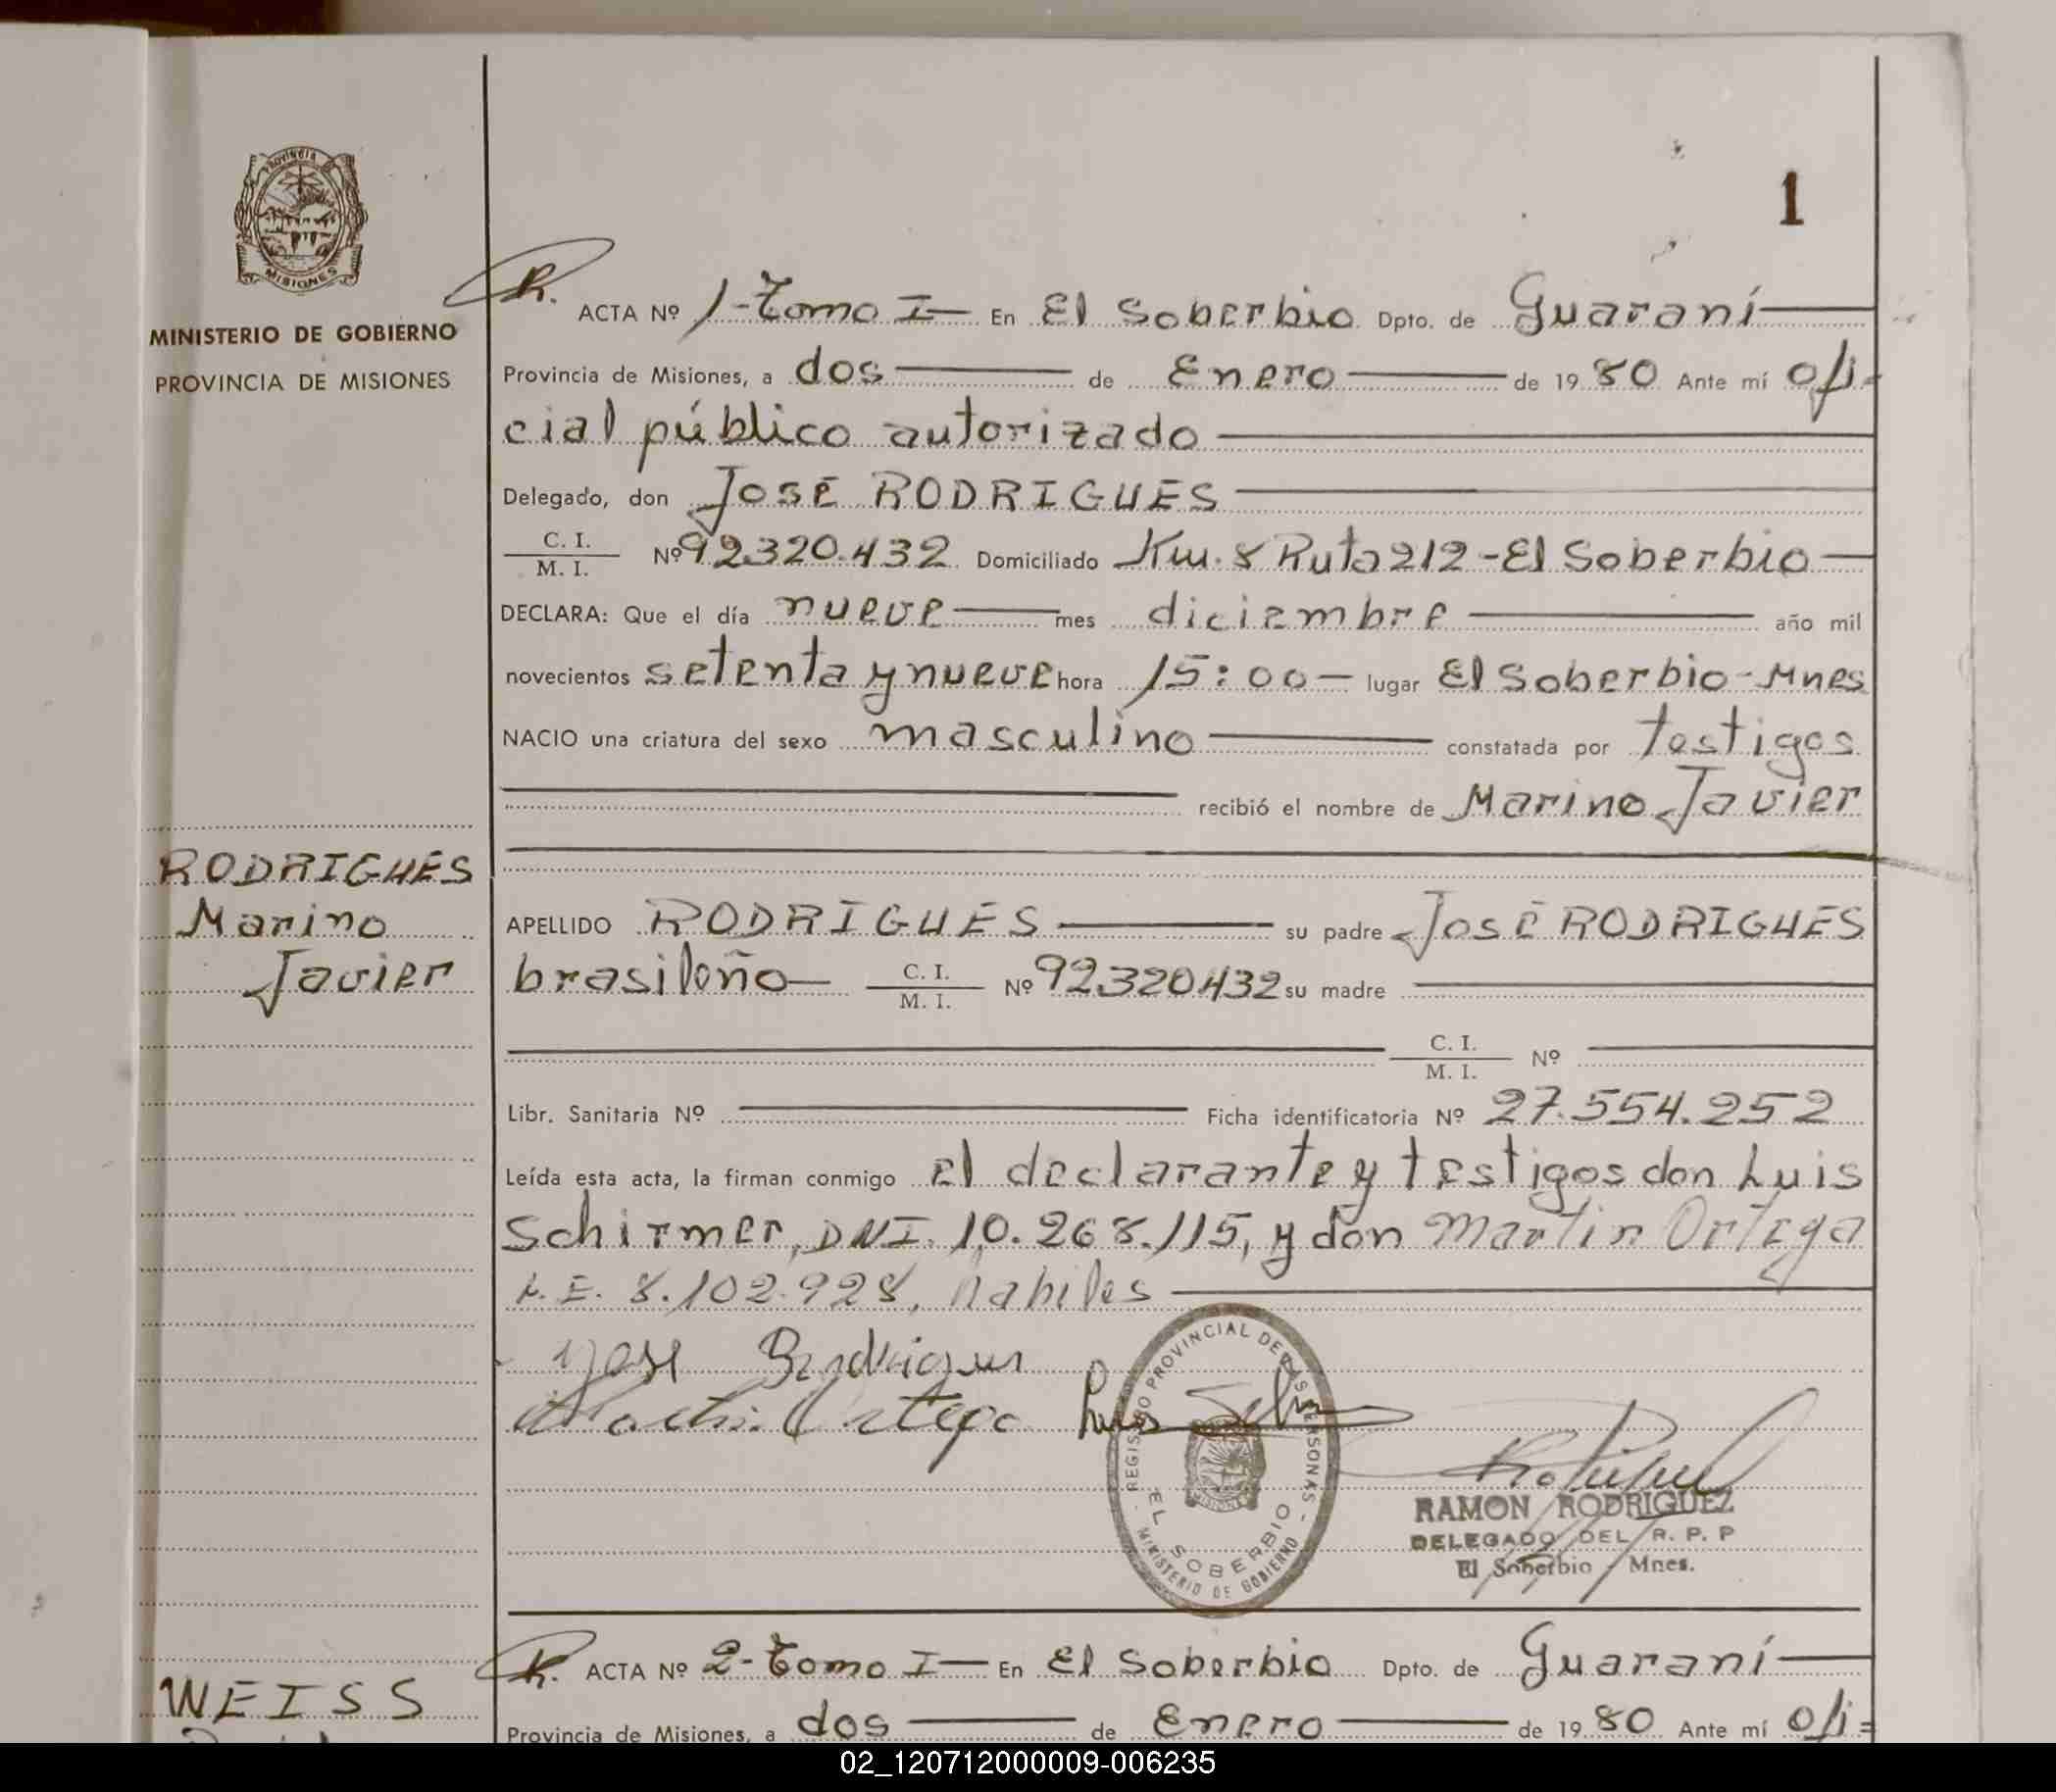 PROVINCIA
MISIONES
MINISTERIO DE GOBIERNO
PROVINCIA DE MISIONES
1
R. ACTA Nº 1-Tomo I- En El Soberbio Dpto. de Guaraní
Provincia de Misiones, a dos de Enero de 1980 Ante mí ofi=
cial público autorizado
Delegado, don José RODRIGUES
C. I.
M. I. Nº 92320.432 Domiciliado Km. 8 Ruta 212 - El Soberbio
DECLARA: Que el día nueve mes diciembre año mil
novecientos setenta y nueve hora 15:00 lugar El Soberbio - Mnes
NACIO una criatura del sexo masculino constatada por testigos
recibió el nombre de Marino Javier
RODRIGUES
Marino
Javier
APELLIDO RODRIGUES su padre José RODRIGUES
brasileño C. I.
M. I. Nº 92320432 su madre
C. I.
M. I. Nº
Libr. Sanitaria Nº Ficha identificatoria Nº 27.554.252
Leída esta acta, la firman conmigo el declarante y testigos don Luis
Schirmer, DNI. 10.268.115, y don Martin Ortega
L.E. 8.102.928, habiles
Jose Rodrigues
Martin Ortega Luis
REGISTRO PROVINCIAL DE LAS PERSONAS -
EL SOBERBIO
MINISTERIO DE GOBIERNO
MISIONES
RAMON RODRIGUEZ
DELEGADO DEL R. P. P
El Soberbio Mnes.
R. ACTA Nº 2-Tomo I- En El Soberbio Dpto. de Guaraní
WEISS
Provincia de Misiones, a dos de Enero de 1980 Ante mí ofi=
02_120712000009-006235